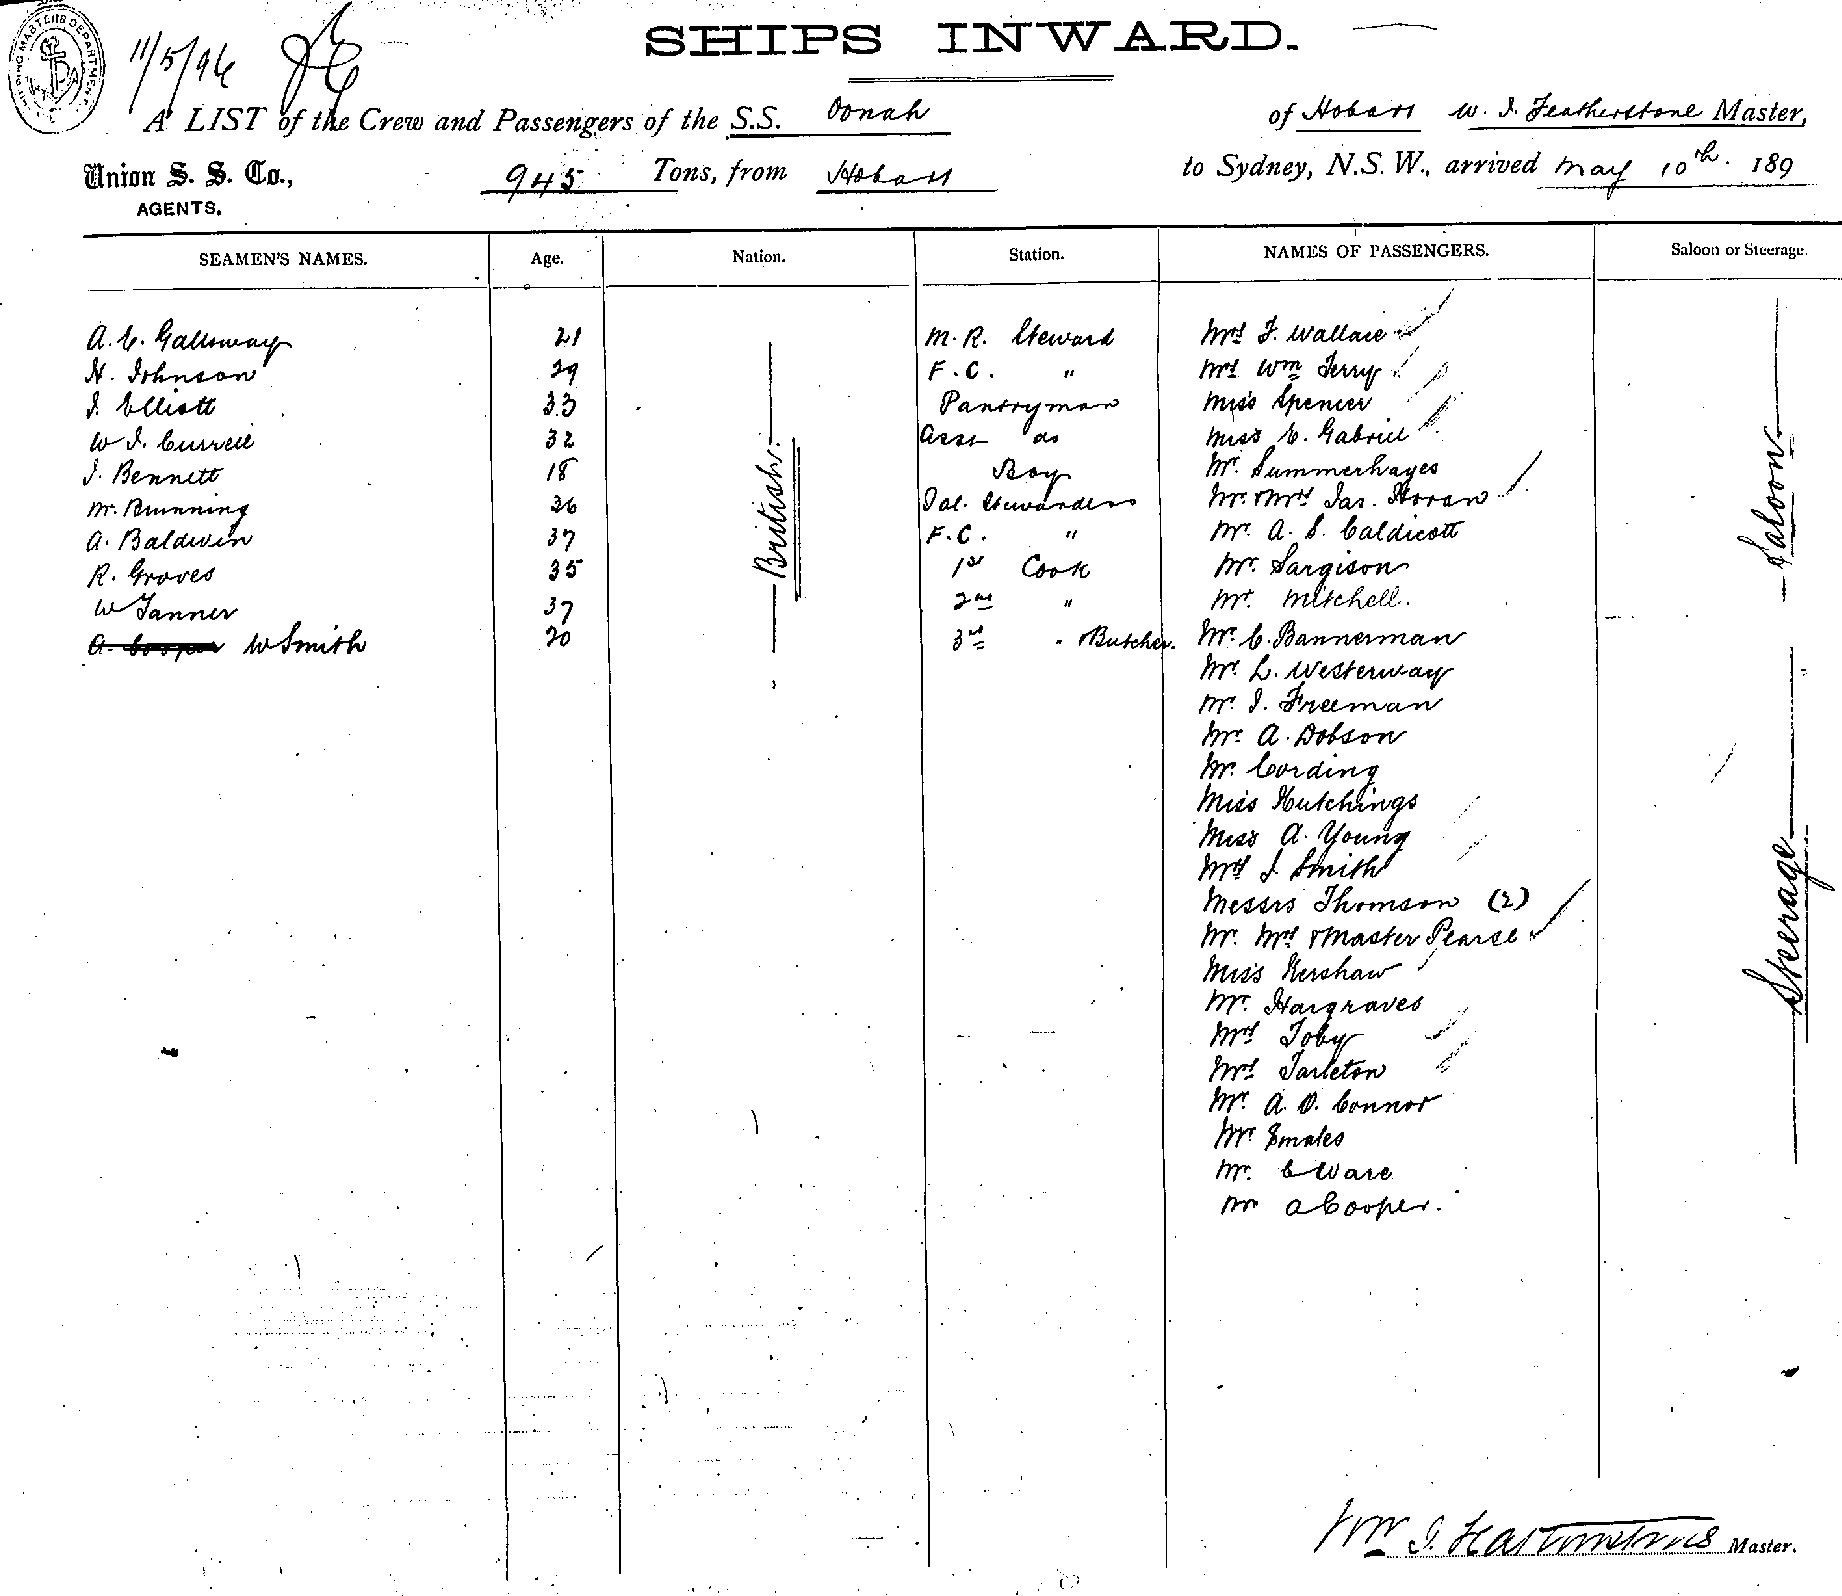 SHIPS INWARD.
11/5/96
A LIST of the Crew and Passengers of the S.S. Oonah of Hobart W. J. Featherstone Master,
Union S. S. Co., 945 Tons, from Hobart to Sydney, N.S.W., arrived May 10th. 189
AGENTS.
SEAMEN'S NAMES. Age. Nation. Station. NAMES OF PASSENGERS. Saloon or Steerage.
A. C. Galloway 21 M. R. Steward Mrs F. Wallace
H. Johnson 29 F. C. " Mrs Wm Terry
J. Elliott 33 Pantryman Miss Spencer
W J. Currell 32 Asst do Miss C. Gabriel
J. Bennett 18 Boy Mr. Summerhayes
M. Brunning 36 Sal. Stewardess Mr. & Mrs Jas. Horan
A. Baldwin 37 F.C. " Mr. A. S. Caldicott
R. Groves 35 1st Cook Mr. Sargison
W Tanner 37 2nd " Mr. Mitchell.
A. Cooper W Smith 20 3rd " & Butcher. Mr. C. Bannerman
British
Saloon
Mr. L. Westerway
Mr. J. Freeman
Mr. A. Dobson
Mr. Cording
Miss Hutchings
Miss A. Young
Mrs J. Smith
Messrs Thomson (2)
Mr. Mrs & Master Pearse
Miss Kershaw
Mr. Hargraves
Mrs Toby
Mrs Tarleton
Mr. A. O. Connor
Mr. Smales
Mr. C Ware
Mr A Cooper.
Steerage
Wm J. Featherstone Master.